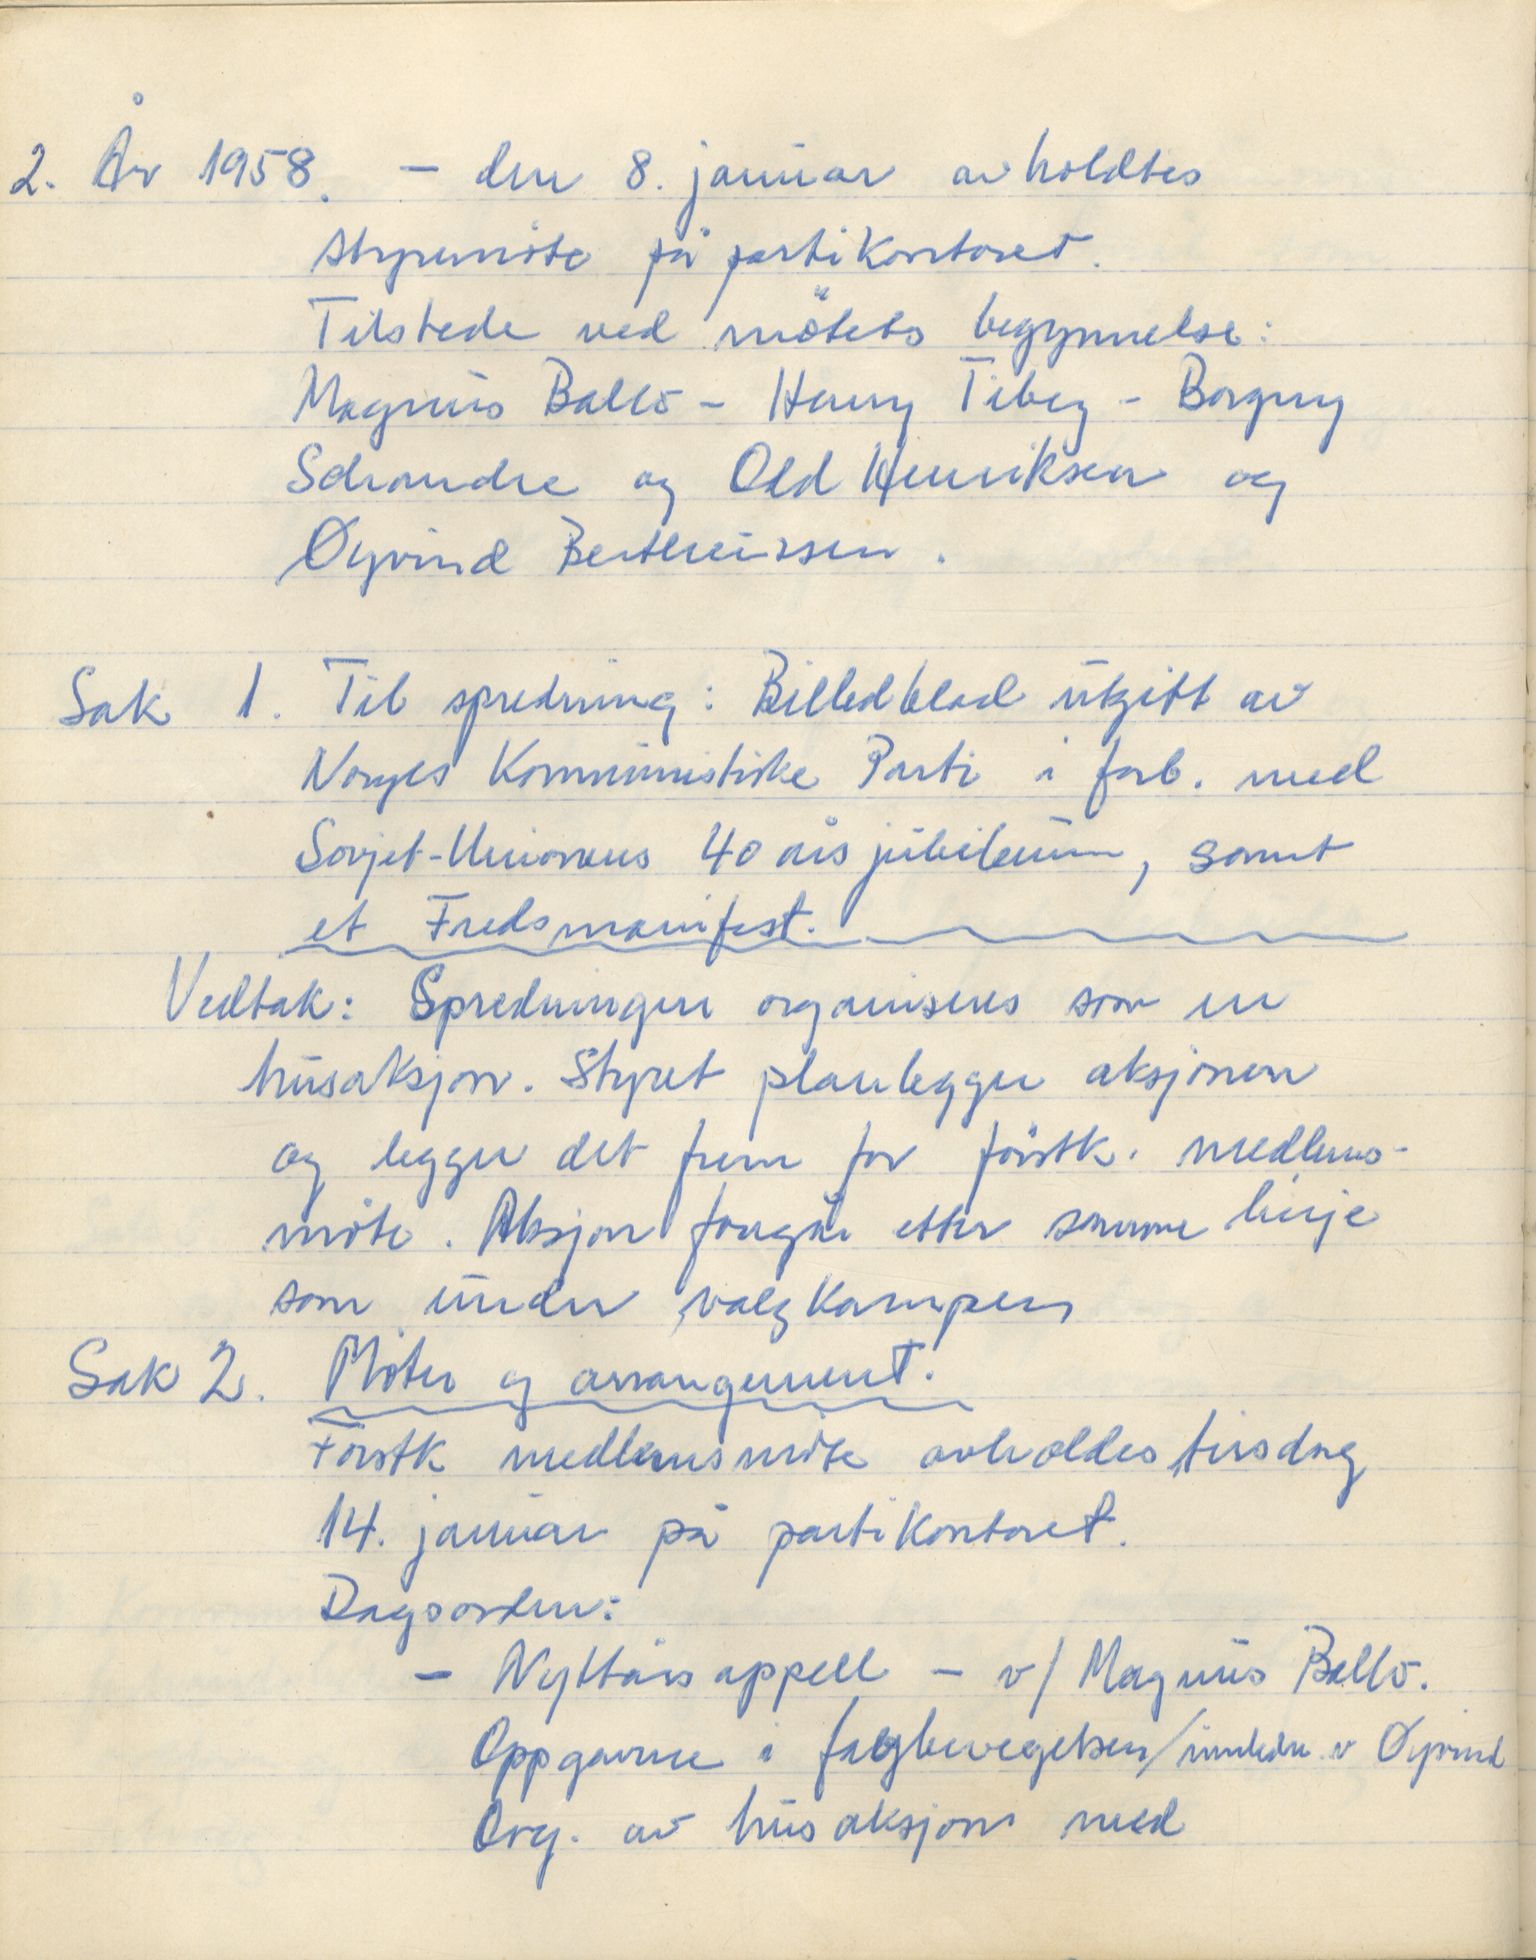 2. År 1958. – den 8. januar avholdtes
styremöte på partikontoret.
Tilstede ved mötets begynnelse:
Magnus Ballo – Henry Tiberg – Borgny
og Odd Henriksen og
Øyvind Bertheussen.
Sak 1. Til spredning: Billedblad utgitt av
Norges Kommunistiske Parti i forb. med
Sovjet-Unionens 40 års jubileum, samt
et Fredsmanifest.
Vedtak: Spredningen organiseres som en
husaksjon. Styret planlegger aksjonen
og legger det frem for förstk. medlems-
möte. Aksjon foregår etter samme linje
som under valgkampen
Sak 2. Möter og arrangement.
Förstk medlemsmöte avholdes tirsdag
14. januar på partikontoret.
Dagsorden:
– Nyttårsappell – v/ Magnus Ballo.
Oppgavene i fagbevegelsen/innleder v Øyvind
Org. av husaksjon med